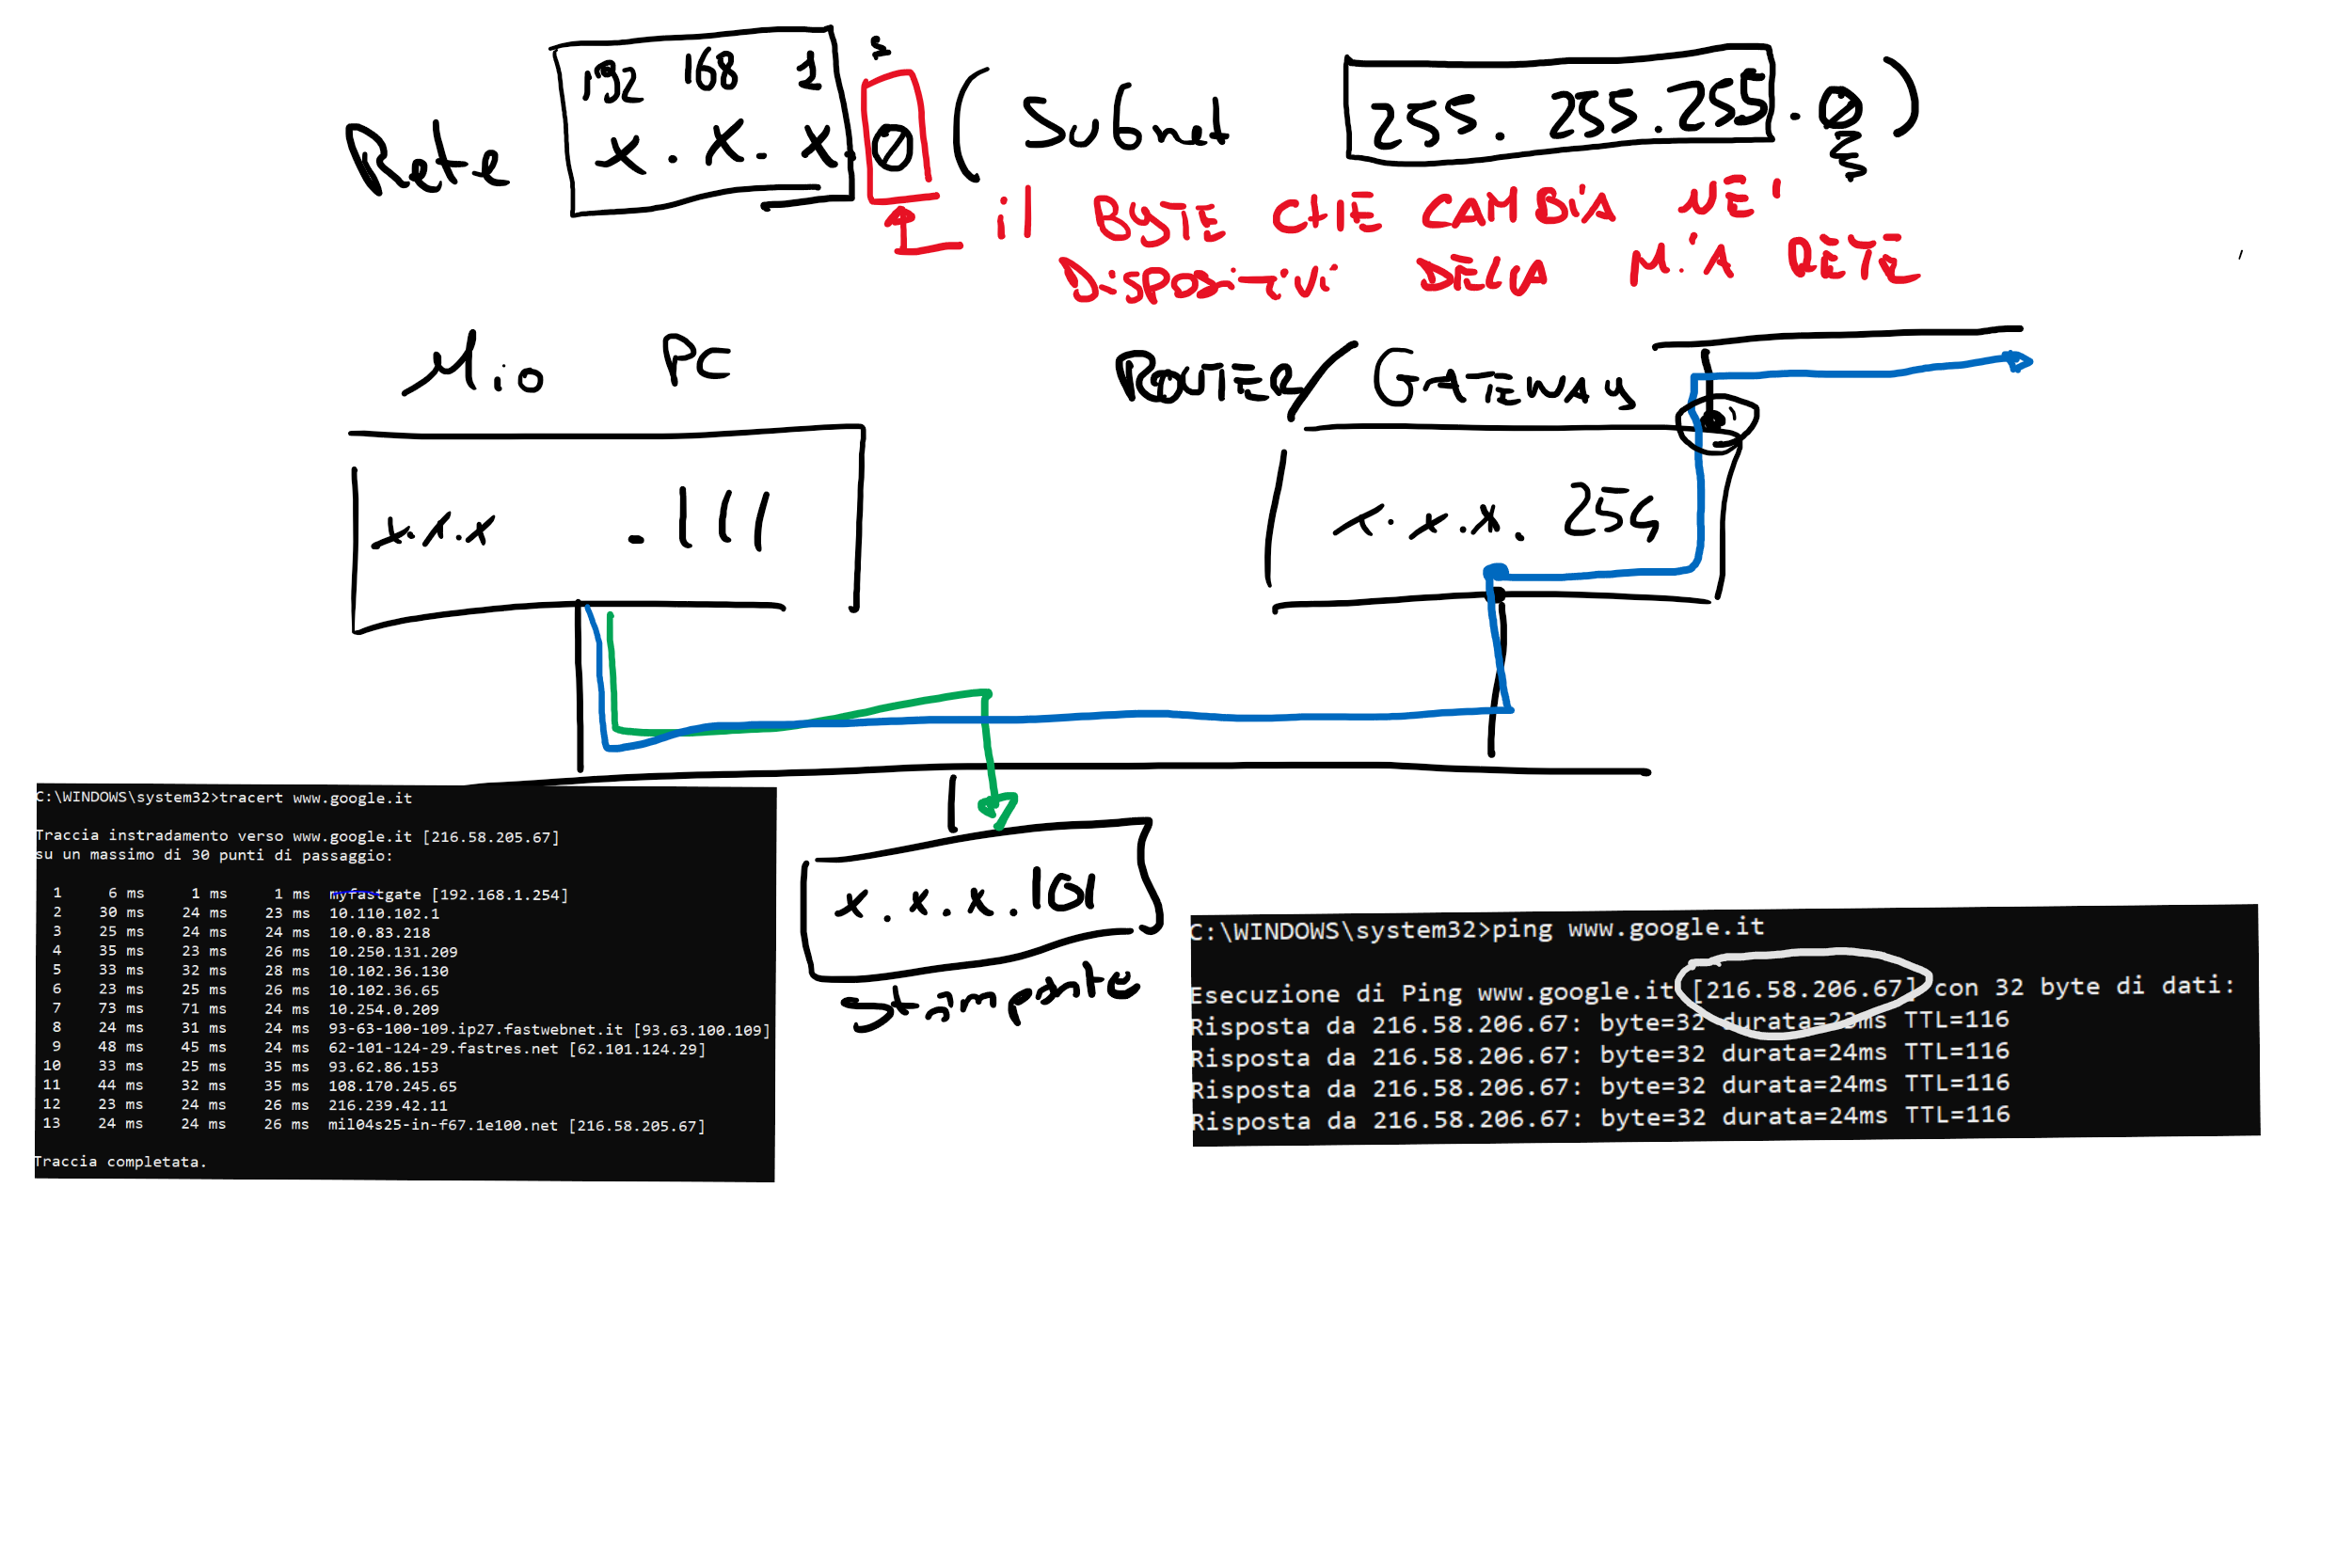 192 168 1
Rete x.x.x.0 (Subnet 255.255.255.0)
il BYTE CHE CAMBIA NEI
DISPOSITIVI DELLA MIA RETE
Mio PC
ROUTER/GATEWAY
x.x.x .111
x.x.x.254
x.x.x.101
stampante
C:\WINDOWS\system32>tracert www.google.it
Traccia instradamento verso www.google.it [216.58.205.67]
su un massimo di 30 punti di passaggio:
1 6 ms 1 ms 1 ms myfastgate [192.168.1.254]
2 30 ms 24 ms 23 ms 10.110.102.1
3 25 ms 24 ms 24 ms 10.0.83.218
4 35 ms 23 ms 26 ms 10.250.131.209
5 33 ms 32 ms 28 ms 10.102.36.130
6 23 ms 25 ms 26 ms 10.102.36.65
7 73 ms 71 ms 24 ms 10.254.0.209
8 24 ms 31 ms 24 ms 93-63-100-109.ip27.fastwebnet.it [93.63.100.109]
9 48 ms 45 ms 24 ms 62-101-124-29.fastres.net [62.101.124.29]
10 33 ms 25 ms 35 ms 93.62.86.153
11 44 ms 32 ms 35 ms 108.170.245.65
12 23 ms 24 ms 26 ms 216.239.42.11
13 24 ms 24 ms 26 ms mil04s25-in-f67.1e100.net [216.58.205.67]
Traccia completata.
C:\WINDOWS\system32>ping www.google.it
Esecuzione di Ping www.google.it [216.58.206.67] con 32 byte di dati:
Risposta da 216.58.206.67: byte=32 durata=23ms TTL=116
Risposta da 216.58.206.67: byte=32 durata=24ms TTL=116
Risposta da 216.58.206.67: byte=32 durata=24ms TTL=116
Risposta da 216.58.206.67: byte=32 durata=24ms TTL=116